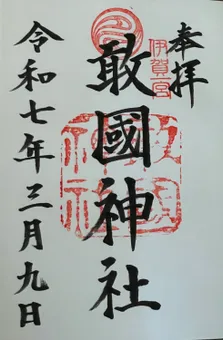 奉拝
伊賀一宮
敢國神社
令和七年三月九日